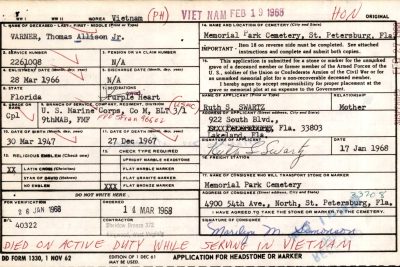 WW I WW II KOREA Vietnam (PH) VIET NAM FEB 19 1968 HON ORIGINAL
1. NAME OF DECEASED - LAST - FIRST - MIDDLE (Print or Type)
WARNER, Thomas Allison Jr.
14. NAME AND LOCATION OF CEMETERY (City and State)
Memorial Park Cemetery, St. Petersburg, Fla.
2. SERVICE NUMBER
2261008
3. PENSION OR VA CLAIM NUMBER
N/A
IMPORTANT: Item 18 on reverse side must be completed. See attached instructions and complete and submit both copies.
4. ENLISTMENT DATE
28 Mar 1966
5. DISCHARGE DATE
N/A
15. This application is submitted for a stone or marker for the unmarked grave of a deceased member or former member of the Armed Forces of the U. S., soldier of the Union or Confederate Armies of the Civil War or for an unmarked memorial plot for a non-recoverable deceased member.
I hereby agree to accept responsibility for properly placing the stone at the grave or memorial plot at no expense to the Government.
6. STATE
Florida
Purple Heart
Ruth S. SWARTZ
RELATIONSHIP
Mother
8. GRADE
Cpl
U. S. Marine Corps, Co M, BLT 3/1
9thMAB, FMF
922 South Blvd.,
XXX Petersburg, Fla. 33803
Lakeland Fla.
10. DATE OF BIRTH (Month, Day, Year)
30 Mar 1947
11. DATE OF DEATH (Month, Day, Year)
27 Dec 1967
Ruth S. Swartz
17 Jan 1968
12. RELIGIOUS EMBLEM (Check one)
13. CHECK TYPE REQUIRED
UPRIGHT MARBLE HEADSTONE
16. FREIGHT STATION
XX LATIN CROSS (Christian)
XX FLAT MARBLE MARKER
STAR OF DAVID (Hebrew)
FLAT GRANITE MARKER
NO EMBLEM
XXX FLAT BRONZE MARKER
Memorial Park Cemetery
DO NOT WRITE HERE
4900 54th Ave., North, St. Petersburg, Fla.
26 JAN 1968
14 MAR 1968
I HAVE AGREED TO TAKE THE STONE OR MARKER TO THE CEMETERY.
40322
Marilyn M. Simonson
DIED ON ACTIVE DUTY WHILE SERVING IN VIETNAM
DD FORM 1330, 1 NOV 62
EDITION OF 1 DEC 61 MAY BE USED.
APPLICATION FOR HEADSTONE OR MARKER